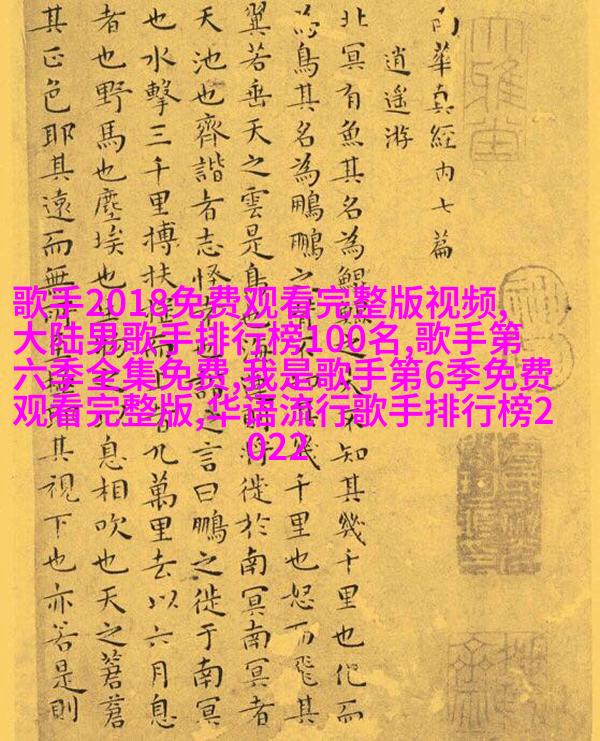 南華真經內七篇
逍遙游
北冥有魚其名為鯤鯤之大不知其幾千里也化而
為鳥其名為鵬鵬之背不知其幾千里也怒而飛其
翼若垂天之雲是鳥也海運則將徙於南冥南冥者
天池也齊諧者志怪者也諧之言曰鵬之徙于南冥
也水擊三千里搏扶搖而上者九萬里去以六月息
者也野馬也塵埃也生物之以息相吹也天之蒼蒼
其正色耶其遠而無所至極耶其視下也亦若是則
歌手2018免费观看完整版视频,
大陆男歌手排行榜100名,歌手第
六季全集免费,我是歌手第6季免费
观看完整版,华语流行歌手排行榜2
022